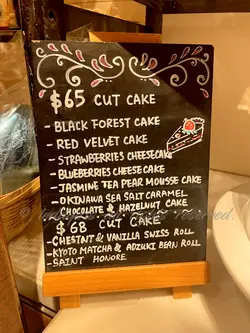 $65 CUT CAKE
- BLACK FOREST CAKE
- RED VELVET CAKE
- STRAWBERRIES CHEESECAKE
- BLUEBERRIES CHEESECAKE
- JASMINE TEA PEAR MOUSSE CAKE
- OKINAWA SEA SALT CARAMEL
CHOCOLATE & HAZELNUT CAKE
$68 CUT CAKE
- CHESTNT & VANILLA SWISS ROLL
- KYOTO MATCHA & ADZUKI BEAN ROLL
- SAINT HONORE